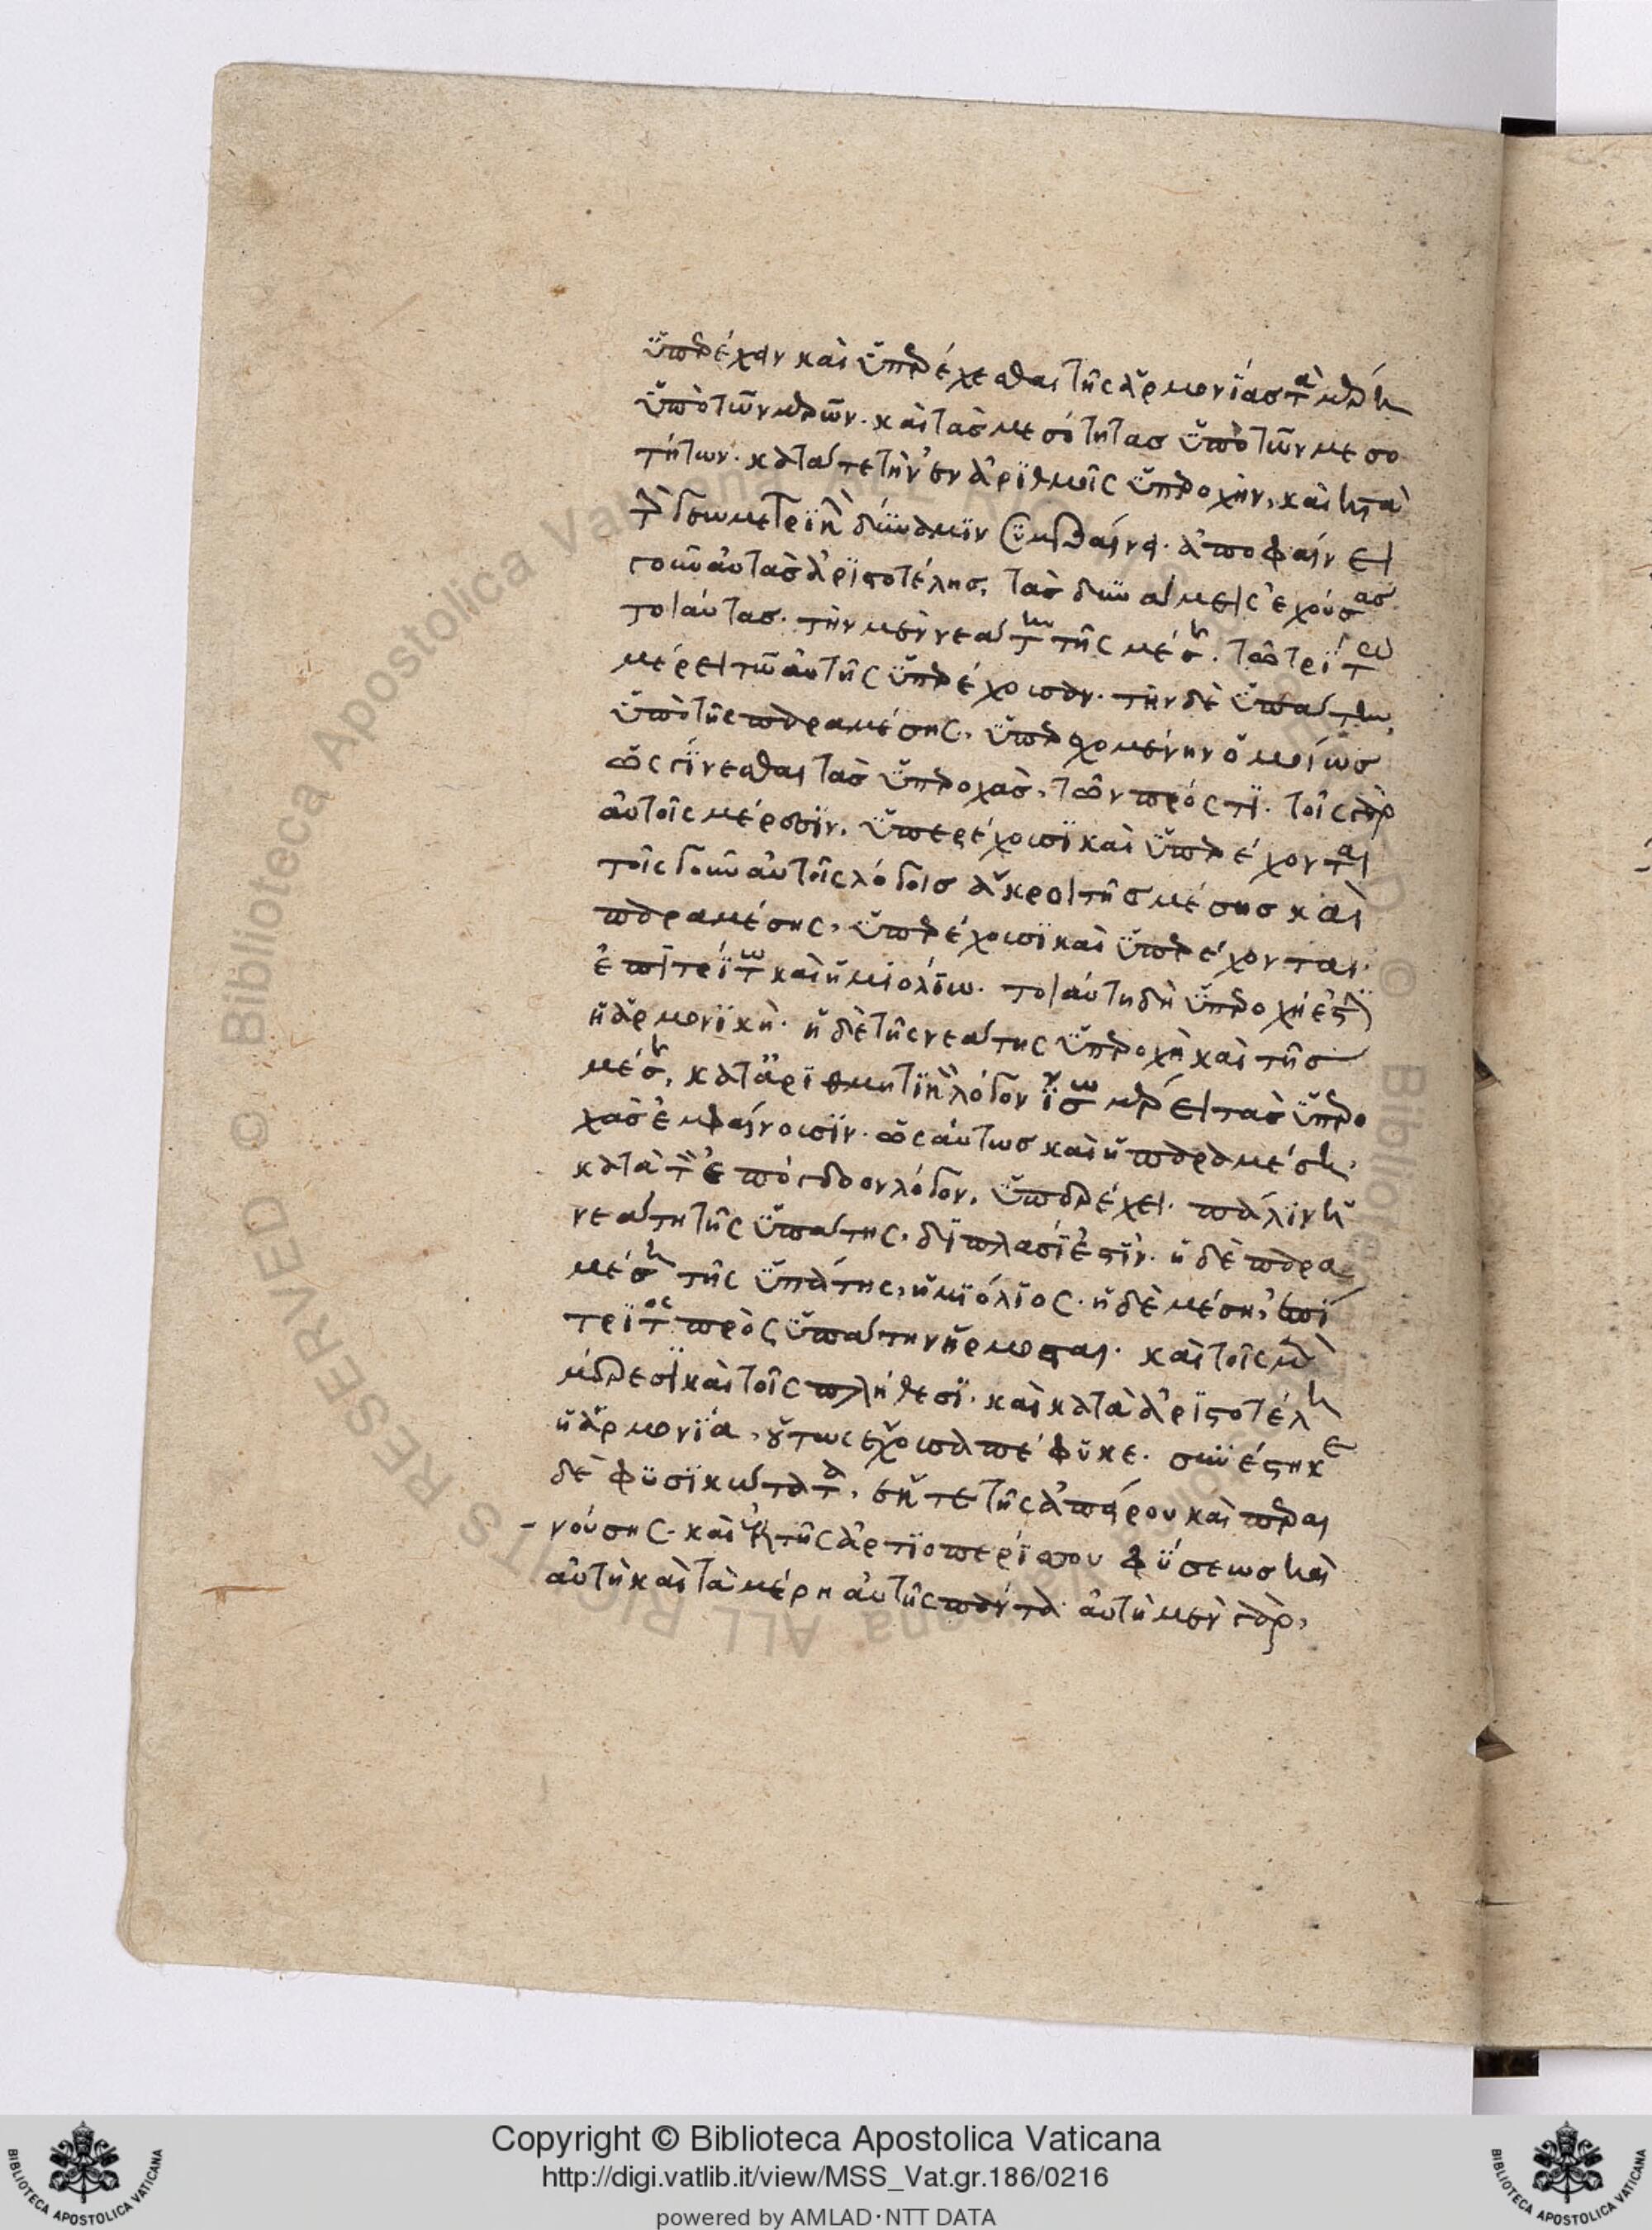 ὑπερέχειν καὶ ὑπερέχεσθαι τῆς ἁρμονίας τὰ μέρη
ὑπὸ τῶν μερῶν. καὶ τὰς μεσότητας ὑπὸ τῶν μεσο
τήτων. κατά τε τὴν ἐν ἀριθμοῖς ὑπεροχὴν, καὶ κατὰ
τὴν γεωμετρικὴν δύναμιν συμβαίνει. ἀποφαίνει
γοῦν αὐτὰς ἀριστοτέλης, τὰς δυνάμεις ἐχούσας
τοιαύτας. τὴν μὲν νεάτην τῆς μέσης. τῶ τρίτω
μέρει τῶ αὐτῆς ὑπερέχουσαν. τὴν δὲ ὑπάτην,
ὑπὸ τῆς παραμέσης, ὑπερεχομένην ὁμοίως
ὡς γίνεσθαι τὰς ὑπεροχὰς, τῶν πρός τι. τοῖς γὰρ
αὐτοῖς μέρεσιν, ὑπερέχουσι καὶ ὑπερέχονται
τοῖς γοῦν αὐτοῖς λόγοις ἄκροι τῆς μέσης καὶ
παραμέσης, ὑπερέχουσι καὶ ὑπερέχονται.
ἐπιτρίτω καὶ ἡμιολίω. τοιαύτη δὴ ὑπεροχή ἐστιν
ἡ ἁρμονική. ἡ δὲ τῆς νεάτης ὑπεροχὴ καὶ τῆς
μέσης, κατ' ἀριθμητικὴν λόγον ἴσω μέρει τὰς ὑπερο
χὰς ἐμφαίνουσιν. ὡσαύτως καὶ ἡ παραμέση.
κατὰ τὸν ἐπόγδοον λόγον, ὑπερέχει. πάλιν ἡ
νεάτη τῆς ὑπάτης, διπλασί ἐστιν. ἡ δὲ παρα
μέση τῆς ὑπάτης, ἡμιόλιος. ἡ δὲ μέση, ἐπί
τριτος πρὸς ὑπάτην ἥρμοσται. καὶ τοῖς μὲν
μέρεσι καὶ τοῖς πλήθεσι. καὶ κατὰ ἀριστοτέλη
ἡ ἁρμονία, οὕτως ἔχουσα πέφυκε. συνέστηκε
δὲ φυσικώτατα, ἔκ τε τῆς ἀπείρου καὶ περαι
νούσης. καὶ ἐκ τῆς ἀρτιοπερίσσου φύσεως καὶ
αὐτὴ καὶ τὰ μέρη αὐτῆς πάντα. αὐτὴ μὲν γὰρ,
Copyright © Biblioteca Apostolica Vaticana
http://digi.vatlib.it/view/MSS_Vat.gr.186/0216
powered by AMLAD·NTT DATA